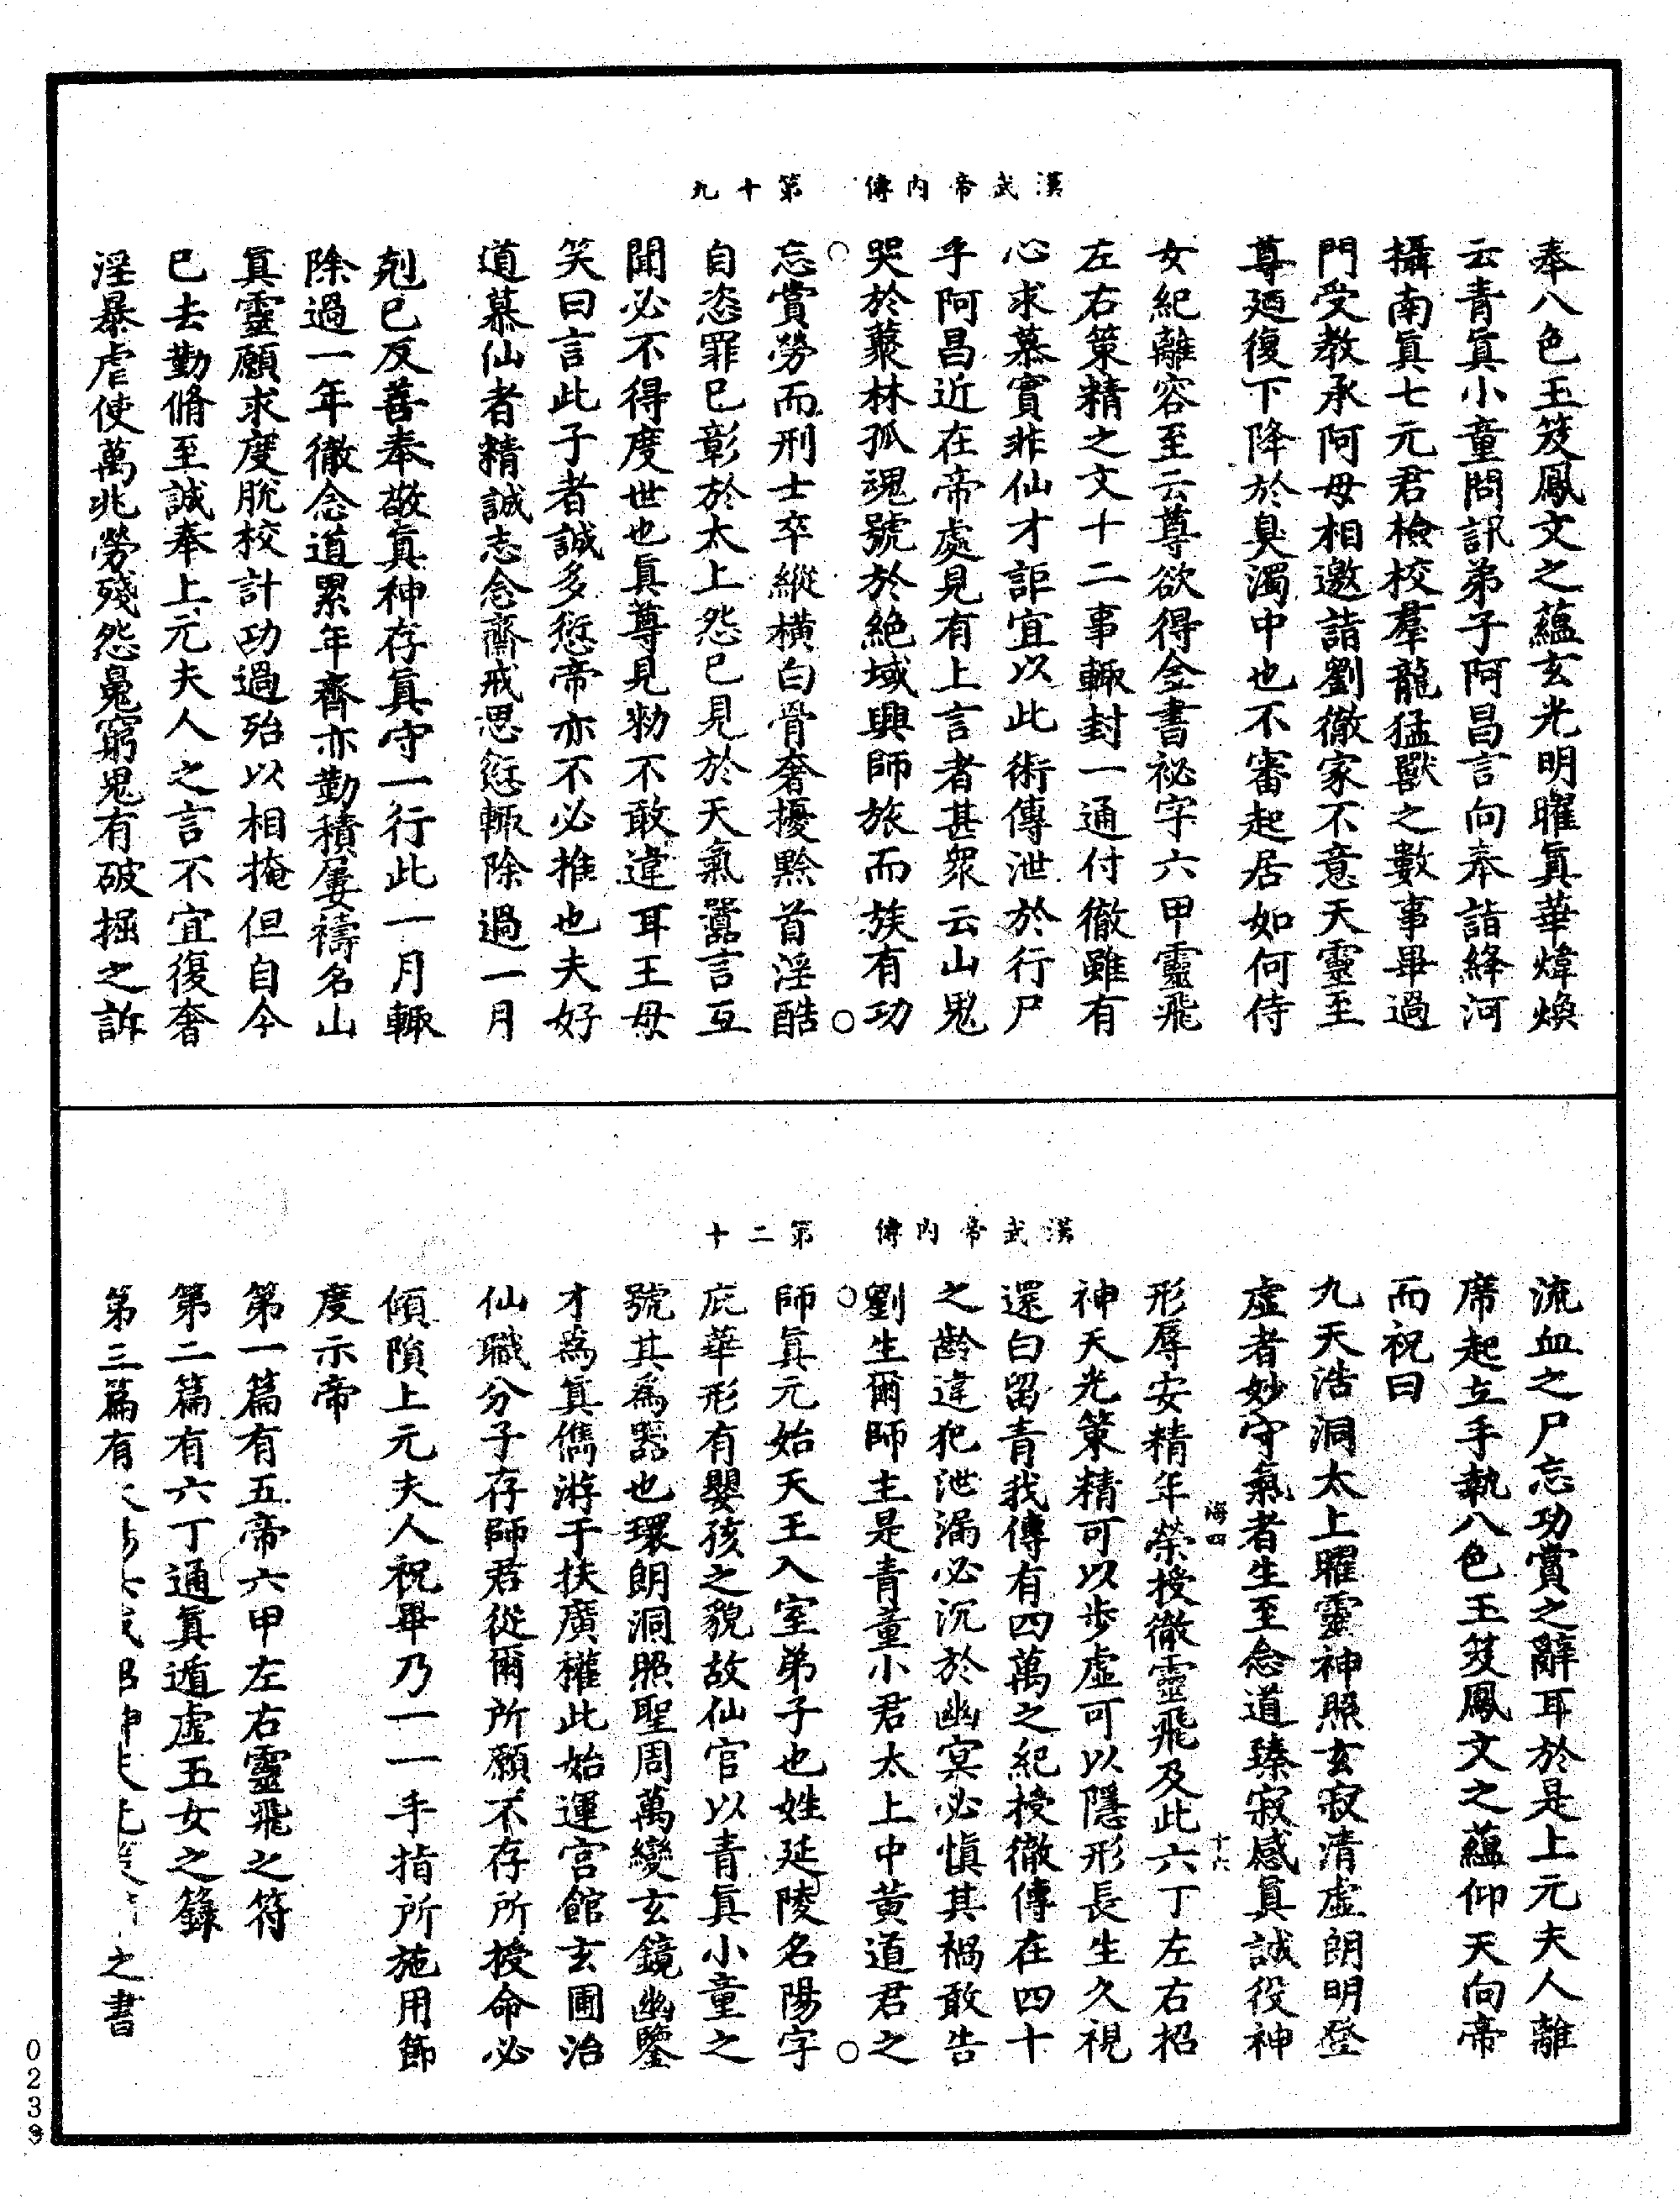 漢武帝內傳　第十九
奉八色玉笈鳳文之蘊玄光明曜真華煒煥
云青真小童問訊弟子阿昌言向奉詣絳河
攝南真七元君檢校羣龍猛獸之數事畢過
門受教承阿母相邀詣劉徹家不意天靈至
尊廼復下降於臭濁中也不審起居如何侍
女紀離容至云尊欲得金書祕字六甲靈飛
左右策精之文十二事輒封一通付徹雖有
心求慕實非仙才詎宜以此術傳泄於行尸
乎阿昌近在帝處見有上言者甚衆云山鬼
哭於藂林孤魂號於絶域興師旅而族有功
忘賞勞而刑士卒縱橫白骨奢擾黔首淫酷
自恣罪已彰於太上怨已見於天氣囂言互
聞必不得度世也真尊見勑不敢違耳王母
笑曰言此子者誠多愆帝亦不必推也夫好
道慕仙者精誠志念齋戒思愆輒除過一月
剋已反善奉敬真神存真守一行此一月輒
除過一年徹念道累年齋亦勤積屢禱名山
真靈願求度脫校計功過殆以相掩但自今
已去勤脩至誠奉上元夫人之言不宜復奢
淫暴虐使萬兆勞殘怨䰟窮鬼有破掘之訴
漢武帝內傳　第二十
流血之尸忘功賞之辭耳於是上元夫人離
席起立手執八色玉笈鳳文之蘊仰天向帝
而祝曰
九天浩洞太上曜靈神照玄寂清虛朗明登
虛者妙守氣者生至念道臻寂感真誠役神
海四　十六
形辱安精年榮授徹靈飛及此六丁左右招
神天光策精可以步虛可以隱形長生久視
還白留青我傳有四萬之紀授徹傳在四十
之齡違犯泄漏必沉於幽冥必慎其禍敢告
劉生爾師主是青童小君太上中黃道君之
師真元始天王入室弟子也姓延陵名陽字
庇華形有嬰孩之貌故仙官以青真小童之
號其為器也環朗洞照聖周萬變玄鏡幽鑒
才為真儁游于扶廣權此始運宮館玄圃治
仙職分子存師君從爾所願不存所授命必
傾隕上元夫人祝畢乃一一手指所施用節
度示帝
第一篇有五帝六甲左右靈飛之符
第二篇有六丁通真遁虛玉女之錄
第三篇有之書